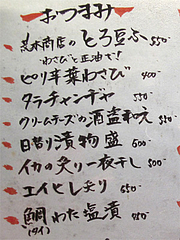 おつまみ
荒木商店のとろ豆ふ 550-
わさびと正油で!
ピリ辛葉わさび 400-
タラチャンヂャ 550-
クリームチーズの酒盗和え 550-
日替り漬物盛 500-
イカの炙り一夜干し 500-
エイヒレ炙り 650-
鯛わた塩漬 450-
(タイ)